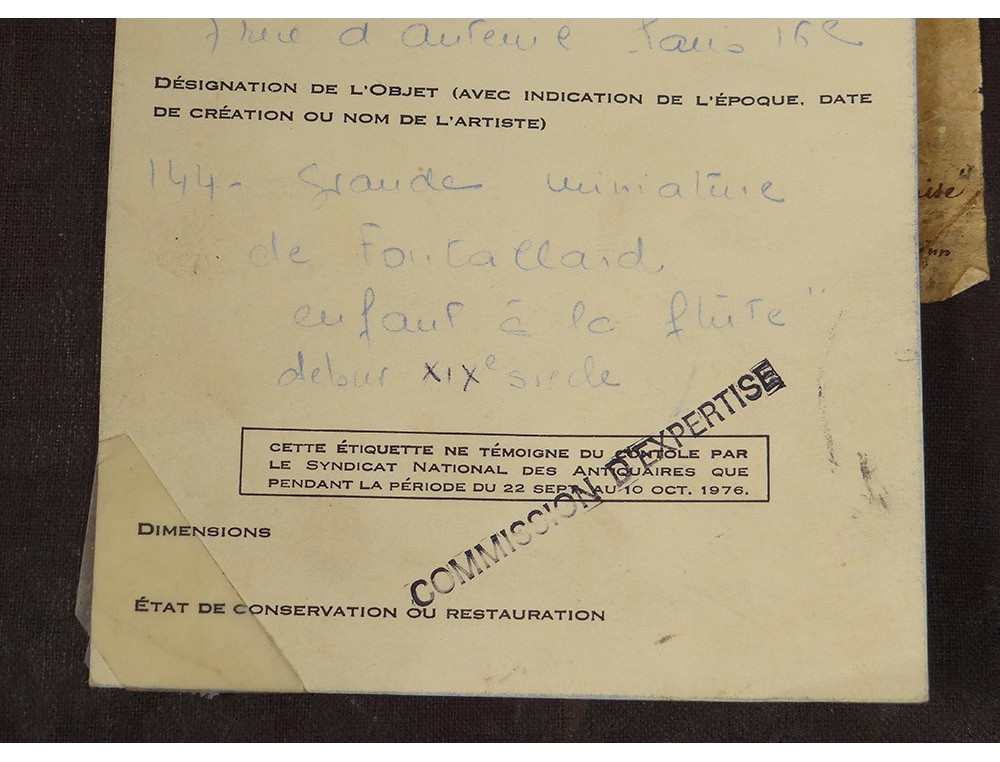 7 rue d'Auteuil Paris 16e
DÉSIGNATION DE L'OBJET (AVEC INDICATION DE L'ÉPOQUE, DATE
DE CRÉATION OU NOM DE L'ARTISTE)
144- Grande miniature
de Fontallard
enfant à la flûte"
debut XIXe siecle
CETTE ÉTIQUETTE NE TÉMOIGNE DU CONTOLE PAR
LE SYNDICAT NATIONAL DES ANTIQUAIRES QUE
PENDANT LA PÉRIODE DU 22 SEPT. AU 10 OCT. 1976.
COMMISSION D'EXPERTISE
DIMENSIONS
ÉTAT DE CONSERVATION OU RESTAURATION